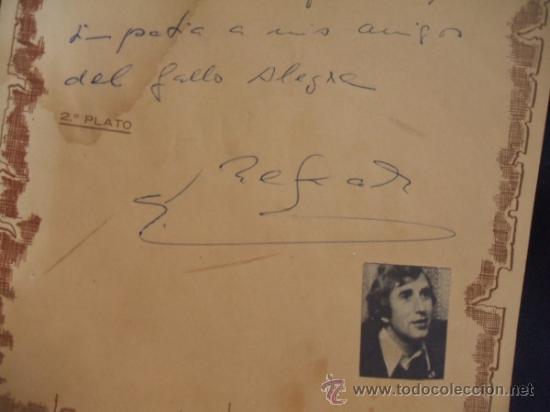 simpatia a mis amigos
del Gallo Alegre
2.º PLATO
© www.todocoleccion.net